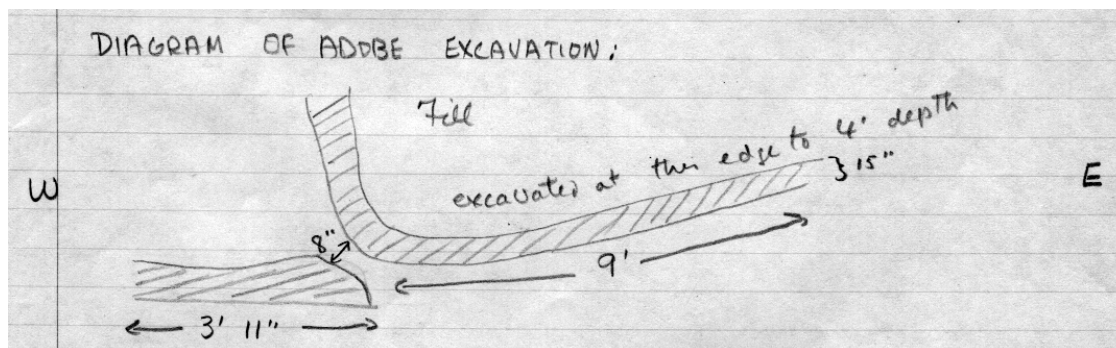 DIAGRAM OF ADOBE EXCAVATION:
Fill
excavated at this edge to 4' depth
15"
W
E
8"
9'
3' 11"